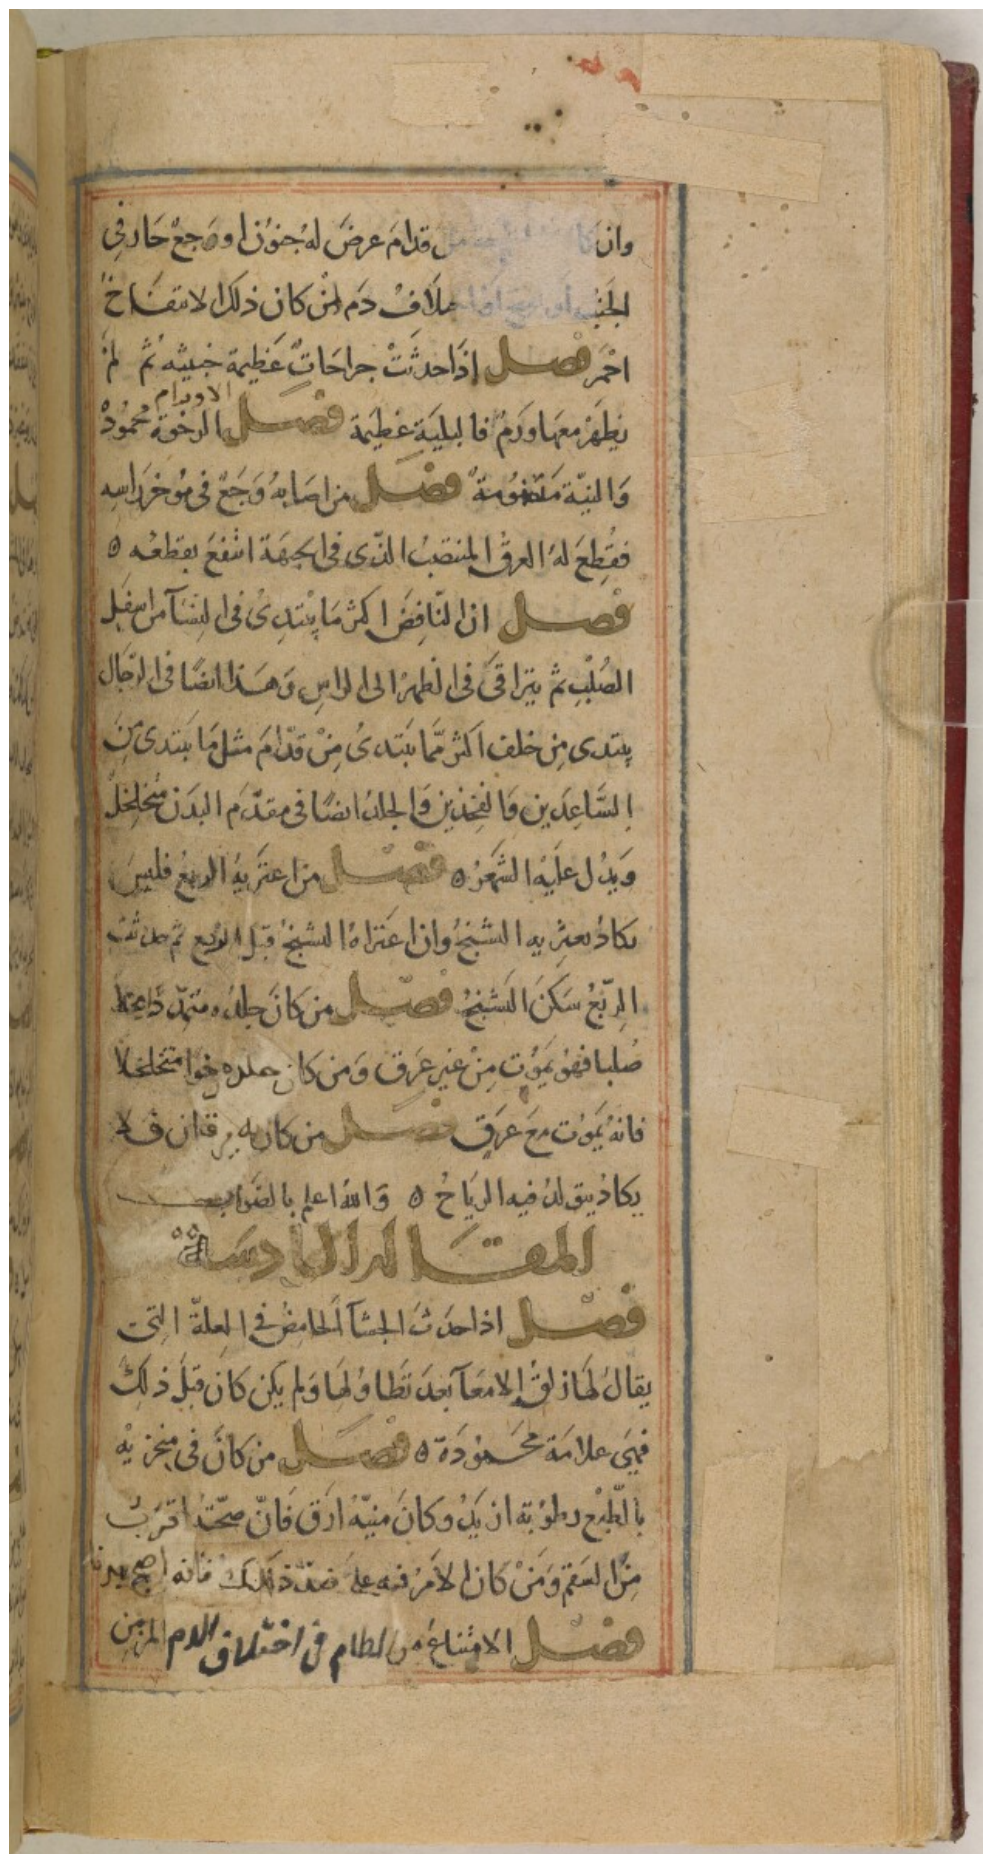 وان كا قدام عرض له جنون او وجع حار في
الجنب أو اختلاف دم ان كان ذلك الانتفاخ
احمر فصل اذا حدثت جراحات عظيمة خبيثه ثم لم
يظهر معها ورم فالبلية عظيمة فصل الاورام الرخوة محمودة
والنيّة مذمومة فصل من اصابه وجع في موخر راسه
فقطع له العرق المنتصب الذي في الجبهة انتفع بقطعه ه
فصل ان النافض اكثر ما يبتدئ في النسآ من اسفل
الصلب ثم يتراقى في الظهر الى الراس وهذا ايضا في الرجال
يبتدى من خلف اكثر مما يبتدئ من قدام مثل ما يبتدى من
الساعدين والفخذين والجلد ايضا في مقدم البدن متخلخل
ويدل عليه الشعر ه فصل من اعتريه الربع فليس
يكاد يعتريه التشنج وان اعتراه التشنج قبل الربع ثم حدثت
الربع سكن التشنج فصل من كان جلده متمددا قحلا
صلبا فهو يموت من غير عرق ومن كان جلده رخوا متخلخلا
فانه يموت مع عرق فصل من كان به يرقان فلا
يكاد يتولد فيه الرياح ه والله اعلم بالصواب
المقالة السادسة
فصل اذا حدث الجشآ الحامض في العلة التي
يقال لها زلق الامعآ بعد تطاولها ولم يكن كان قبل ذلك
فهي علامة محمودة ه فصل من كان في منخريه
بالطبع رطوبة ازيد وكان منيّه ارق فان صحته اقرب
من السقم ومن كان الامر فيه على ضد ذلك فانه اصح بدنا
فصل الامتناع من الطعام في اختلاف الدم المزمن